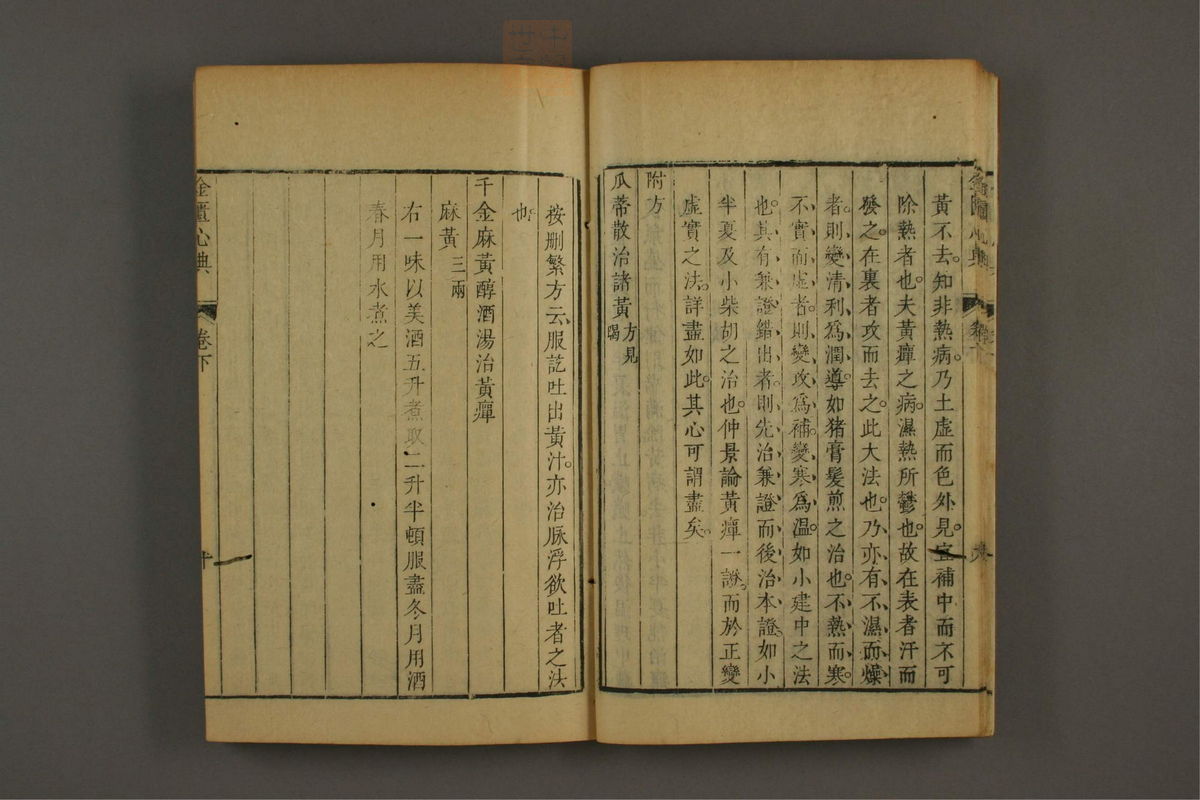 黃不去。知非熱病。乃土虛而色外見。宜補中而不可
除熱者也。夫黃癉之病。濕熱所鬱也。故在表者汗而
發之。在裏者攻而去之。此大法也。乃亦有不濕而燥
者。則變清利為潤導。如猪膏髮煎之治也。不熱而寒。
不實而虛者。則變攻為補。變寒為温。如小建中之法
也。其有兼證錯出者。則先治兼證而後治本證。如小
半夏及小柴胡之治也。仲景論黃癉一證。而於正變
虛實之法。詳盡如此。其心可謂盡矣。
附方
瓜蒂散治諸黃 方見暍
按刪繁方云、服訖吐出黃汁。亦治脉浮欲吐者之法
也。
千金麻黃醇酒湯治黃癉
麻黃 三兩
右一味以美酒五升煮取二升半頓服盡冬月用酒
春月用水煮之
金匱心典 卷下 十